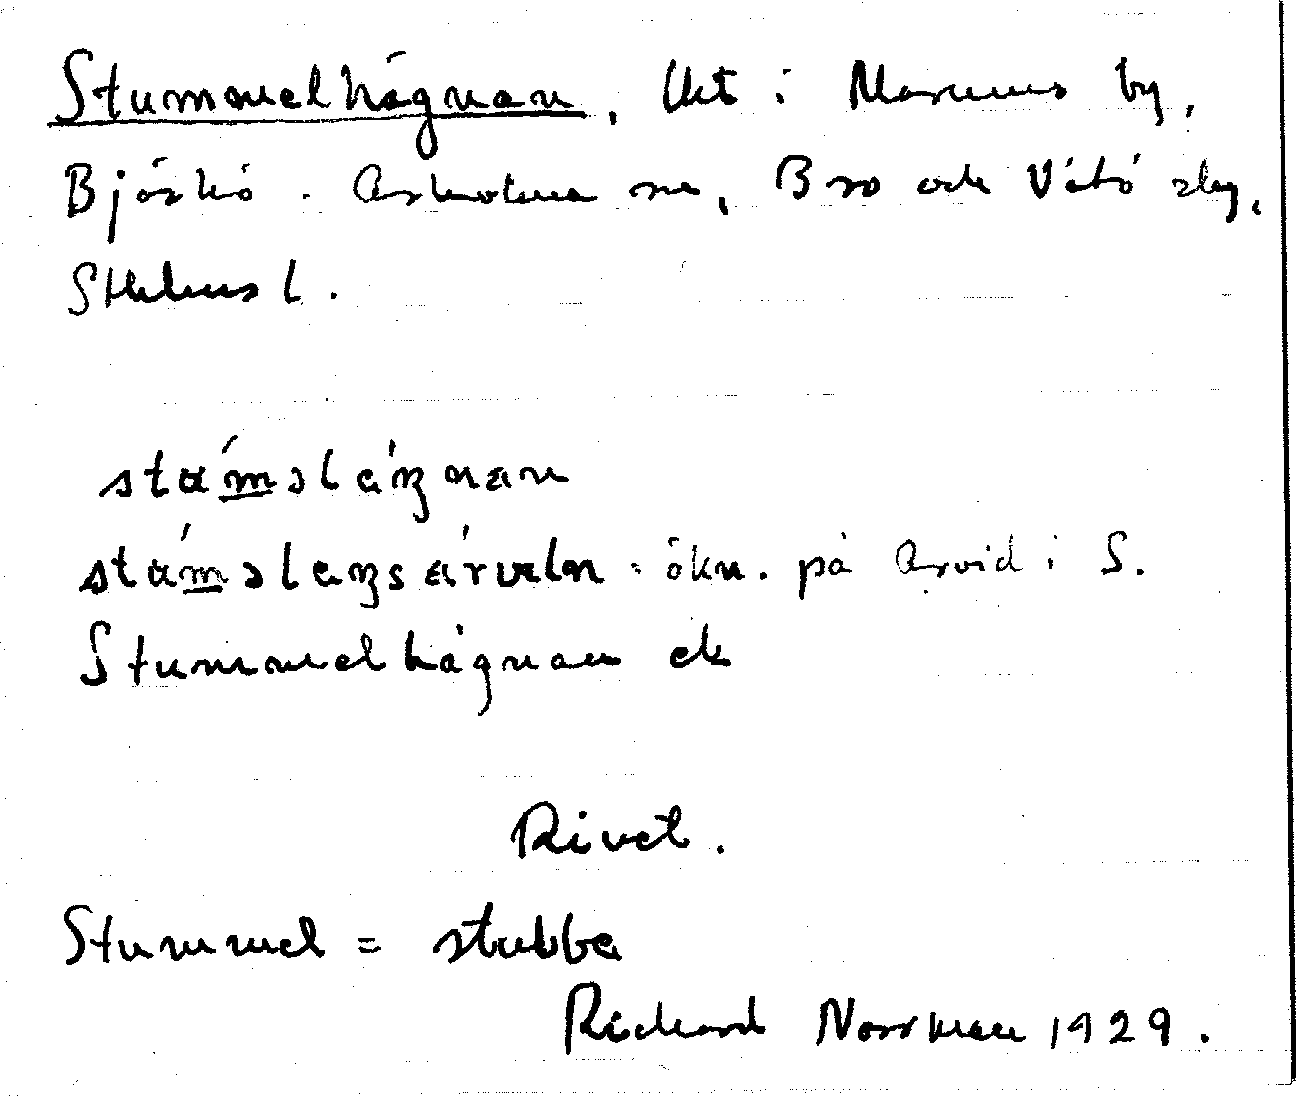 Stummelhägnan, Ukt i Marums by,
Björkö-Arholma sn, Bro och Vätö skg,
Sthlms l.
stám̲əlɛ́ŋnan
stám̲əlɛŋsárveln = ökn. på Arvid i S.
Stummelhägnan ek
Rivet.
Stummel = stubbe
Richard Norrman 1929.